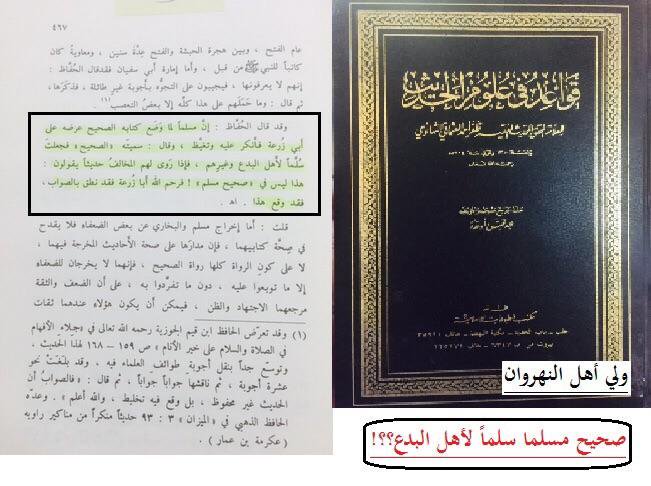 ٤٦٧
عام الفتح ، وبين هجرة الحبشة والفتح عدّة سنين ، ومعاوية كان
كاتباً للنبي ﷺ من قبل ، وأما إمارة أبي سفيان فقدقال الحُفّاظ :
إنهم لا يعرفونها ، فيجيبون على التجوُّه بأجوبة غير طائلة ، فذكرَها ،
ثم قال : وما حَمَلَهم على هذا كلِّه إلا بعضُ التعصب .(١)
وقد قال الحفّاظ : إنَّ مسلماً لما وَضَع كتابه الصحيح عرضه على
أبي زُرعة فأنكر عليه وتغيَّظ ، وقال : سميتَه «الصحيح» فجعلتَ
سُلَّماً لأهل البدع وغيرهم ، فإذا رَوى لهم المخالفُ حديثاً يقولون :
هذا ليس في «صحيح مسلم» ! فرحم الله أبا زُرعة فقد نطق بالصواب ،
فقد وقع هذا . اه .
قلت : أما إخراج مسلم والبخاري عن بعض الضعفاء فلا يقدح
في صِحَّة كتابيهما ، فإن مدارَها على صحة الأحاديث المخرجة فيهما ،
لا على كون الرواة كلها رواة الصحيح ، فإنهما لا يخرجان للضعفاء
إلا ما توبعوا عليه ، دون ما تفرَّدوا به ، على أن الضعف والثقة
مرجعهما الاجتهاد والظن ، فيمكن أن يكون هؤلاء عندهما ثقات
(١) وقد تعرّض الحافظ ابن قيم الجوزية رحمه الله تعالى في «جلاء الأفهام
في الصلاة والسلام على خير الأنام» ص ١٥٩ - ١٦٨ لهذا الحديث ،
وتوسّع جداً بنقل أجوبة طوائف العلماء فيه ، وقد بلغَتْ نحو
عشرة أجوبة ، ثم ناقشها جواباً جواباً ، ثم قال : «فالصواب أن
الحديث غير محفوظ ، بل وقع فيه تخليط ، والله أعلم» . وعدّه
الحافظ الذهبي في «الميزان» ٣ : ٩٣ حديثاً منكراً من مناكير راويه
( عكرمة بن عمار ) .
قواعد في علوم الحديث
ولي أهل النهروان
صحيح مسلما سلماً لأهل البدع؟؟!